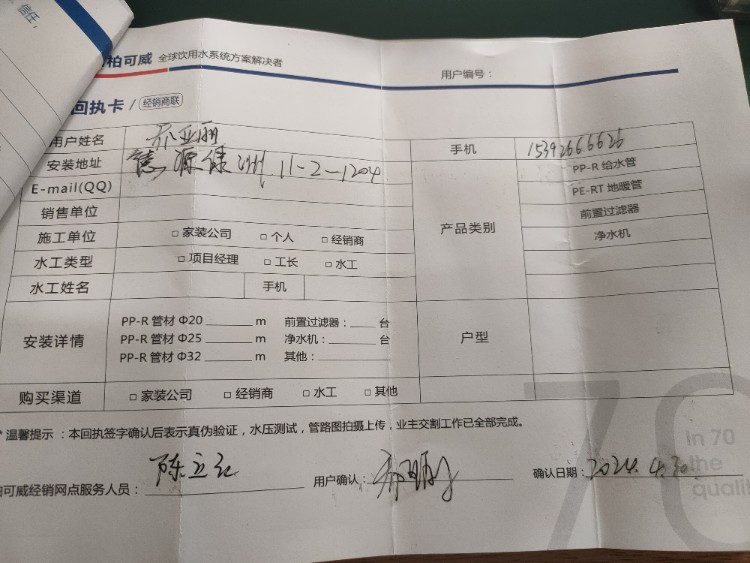 信任,
柏可威 全球饮用水系统方案解决者
用户编号：
回执卡 / 经销商联
用户姓名 乔亚丽 手机 15392666626
安装地址 德源绿洲 11-2-1204 PP-R 给水管
E-mail(QQ) PE-RT 地暖管
销售单位 产品类别 前置过滤器
施工单位 □ 家装公司 □ 个人 □ 经销商 净水机
水工类型 □ 项目经理 □ 工长 □ 水工
水工姓名 手机
PP-R 管材 Φ20 ______ m 前置过滤器：____ 台
安装详情 PP-R 管材 Φ25 ______ m 净水机：____ 台 户型
PP-R 管材 Φ32 ______ m 其他：______
购买渠道 □ 家装公司 □ 经销商 □ 水工 □ 其他
* 温馨提示 ：本回执签字确认后表示真伪验证，水压测试，管路图拍摄上传，业主交割工作已全部完成。
70
In 70
the
quali
柏可威经销网点服务人员： 陈立红 用户确认： 确认日期： 2024.4.30